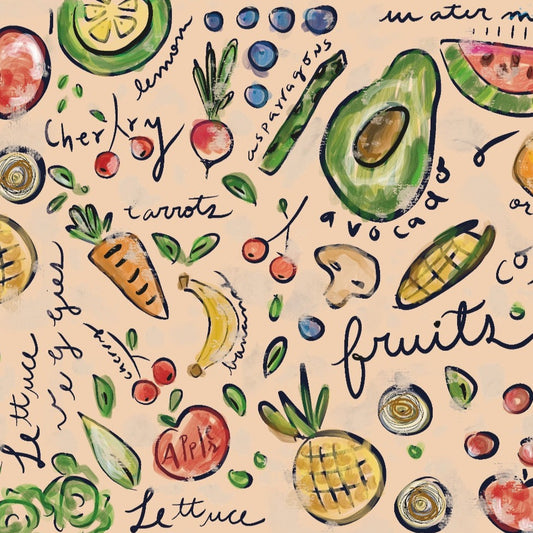 water m
lemon
asparragons
Cherry
avocado
or
carrots
co
veggies
banana
cherry
fruits
Lettuce
APPle
Lettuce